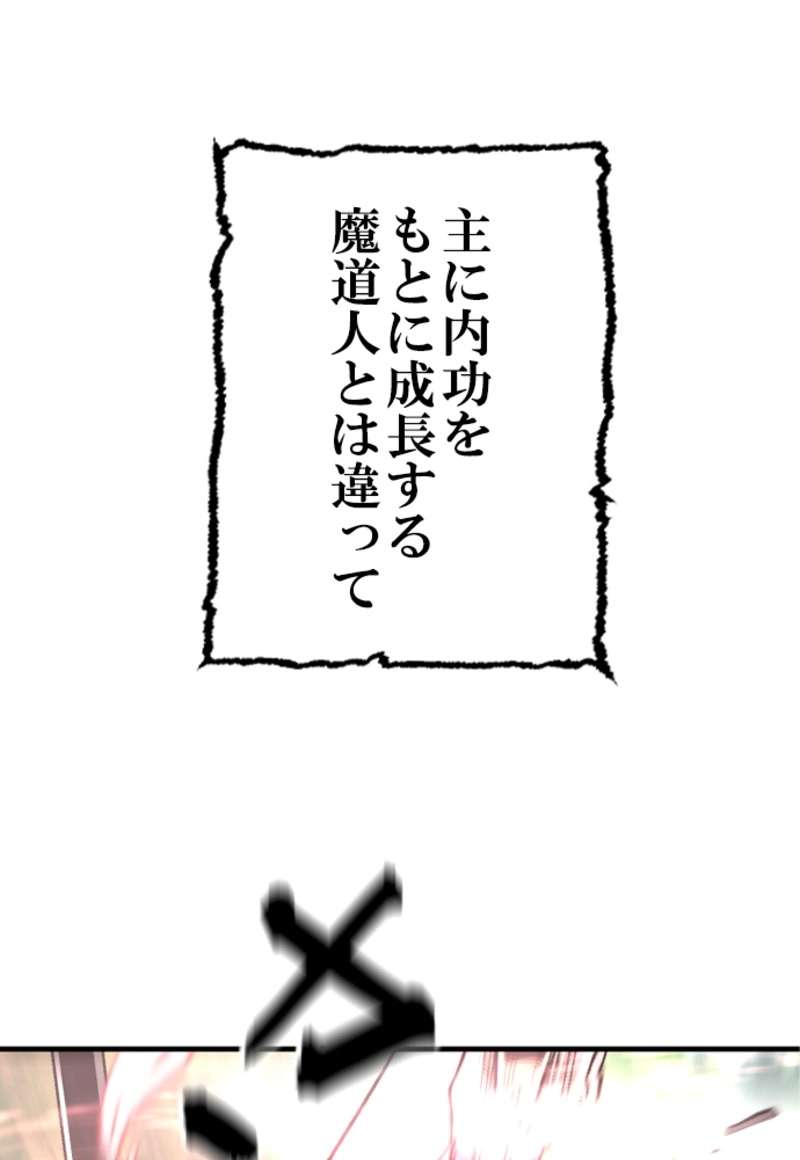 主に内功を
もとに成長する
魔道人とは違って